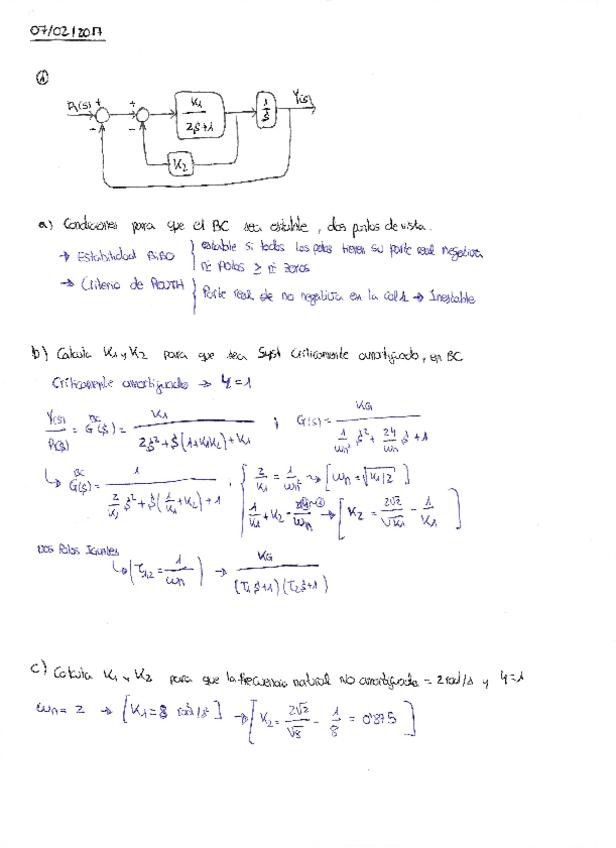 07/02/2017
①
R(s) + + K1 / 2s+1 1/s Y(s)
- - K2
a) Condiciones para que el BC sea estable, dos puntos de vista.
→ Estabilidad BIBO { estable si todos los polos tienen su parte real negativa
nº Polos ≥ nº zeros
→ Criterio de ROUTH { Parte real de no negativa en la col 1 → Inestable
b) Calcula K1 y K2 para que sea Syst críticamente amortiguado, en BC
Críticamente amortiguado → ϥ=1
Y(s)/R(s) = G(s)^BC = K1 / (2s²+s(1+K1K2)+K1) ; G(s) = KG / (1/ωn² s² + 2ϥ/ωn s + 1)
↳ G(s)^BC = 1 / (2/K1 s² + s(1/K1 + K2) + 1) , { 2/K1 = 1/ωn² → [ωn = √K1/2]
1/K1 + K2 = 2ϥ/ωn → [K2 = 2√2/√K1 - 1/K1]
Dos Polos Iguales
↳ (τ1,2 = 1/ωn) → KG / (τ1s+1)(τ2s+1)
c) Calcula K1 y K2 para que la frecuencia natural No amortiguada = 2 rad/s y ϥ=1
ωn = 2 → [K1 = 8 rad/s²] → [K2 = 2√2/√8 - 1/8 = 0'875]